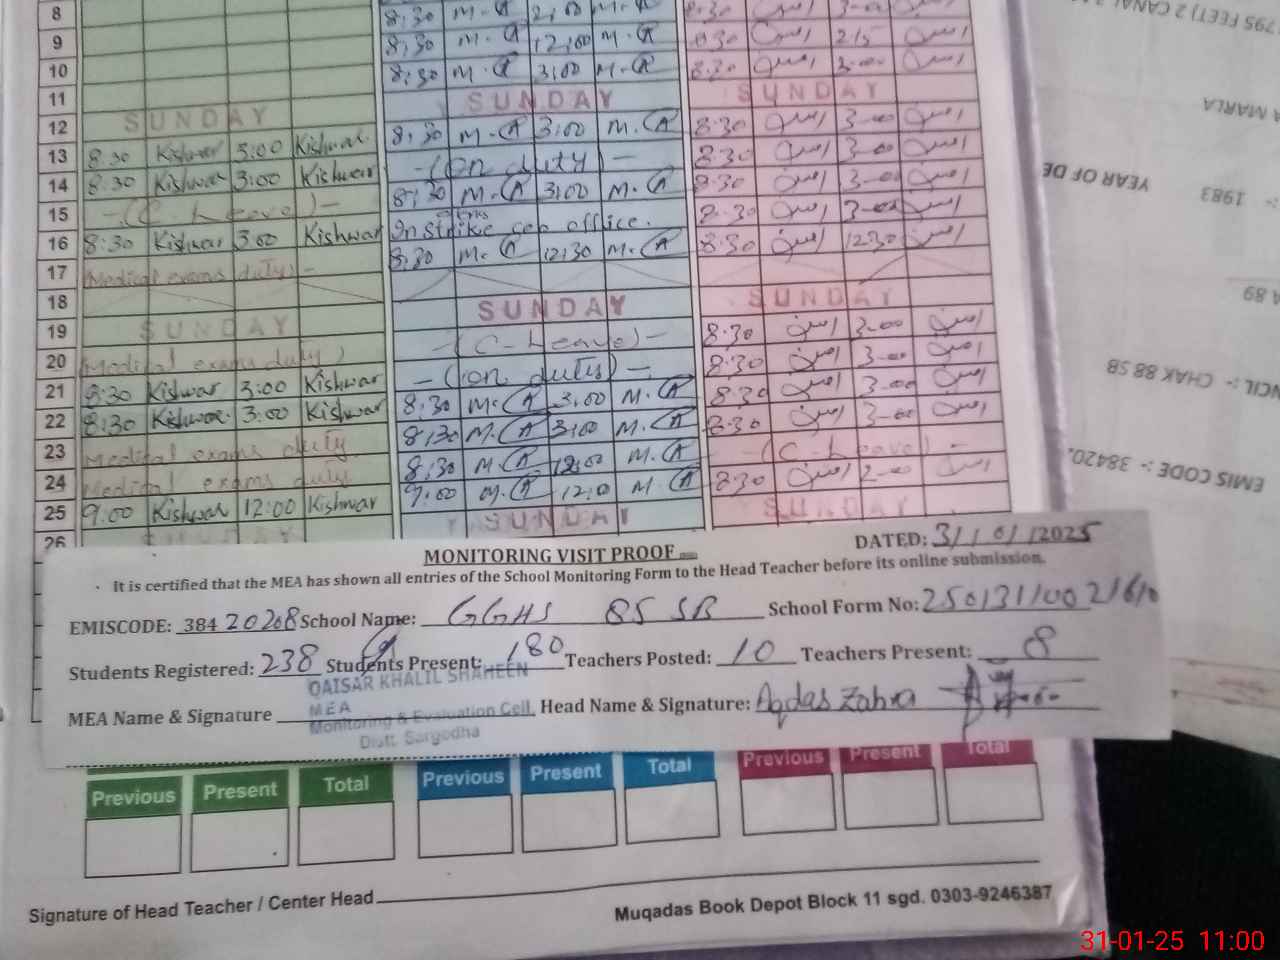 8 8:30 M.A 2:00 M.A 8:30 امین 3-00 امین
9 8:30 M.A 12:00 M.A 8:30 امین 2:15 امین
10 8:30 M.A 3:00 M.A 8:30 امین 3-00 امین
11 SUNDAY SUNDAY
12 SUNDAY 8:30 M.A 3:00 M.A 8:30 امین 3-00 امین
13 8:30 Kishwar 3:00 Kishwar -(on duty)- 8:30 امین 3-00 امین
14 8:30 Kishwar 3:00 Kishwar 8:30 M.A 3:00 M.A 8:30 امین 3-00 امین
15 -(C-Leave)- In strike ceo office. 8:30 امین 3-00 امین
16 8:30 Kishwar 3:00 Kishwar 8:30 M.A 12:30 M.A 8:30 امین 12:30 امین
17 (Medical exams duty)-
18 SUNDAY SUNDAY
19 SUNDAY -(C-Leave)- 8:30 امین 3-00 امین
20 (Medical exams duty) -(on duty)- 8:30 امین 3-00 امین
21 8:30 Kishwar 3:00 Kishwar 8:30 M.A 3:00 M.A 8:30 امین 3-00 امین
22 8:30 Kishwar 3:00 Kishwar 8:30 M.A 3:00 M.A 8:30 امین 3-00 امین
23 Medical exams duty 8:30 M.A 12:00 M.A -(C-Leave)-
24 Medical exams duty 9:00 M.A 12:0 M.A 8:30 امین 2-00 امین
25 9:00 Kishwar 12:00 Kishwar SUNDAY SUNDAY
26 SUNDAY
MONITORING VISIT PROOF DATED: 31/01/2025
It is certified that the MEA has shown all entries of the School Monitoring Form to the Head Teacher before its online submission.
EMISCODE: 38420208 School Name: GGHS 85 SB School Form No: 25013110021610
Students Registered: 238 Students Present: 180 Teachers Posted: 10 Teachers Present: 8
QAISAR KHALIL SHAHEEN
MEA
MEA Name & Signature Monitoring & Evaluation Cell, Head Name & Signature: Aqdas Zahra
Distt. Sargodha
Previous Present Total Previous Present Total Previous Present Total
Signature of Head Teacher / Center Head
Muqadas Book Depot Block 11 sgd. 0303-9246387
795 FEET) 2 CANAL
MARLA
YEAR OF DE :- 1983
A 89
NCIL :- CHAK 88 SB
EMIS CODE :- 38420
31-01-25 11:00